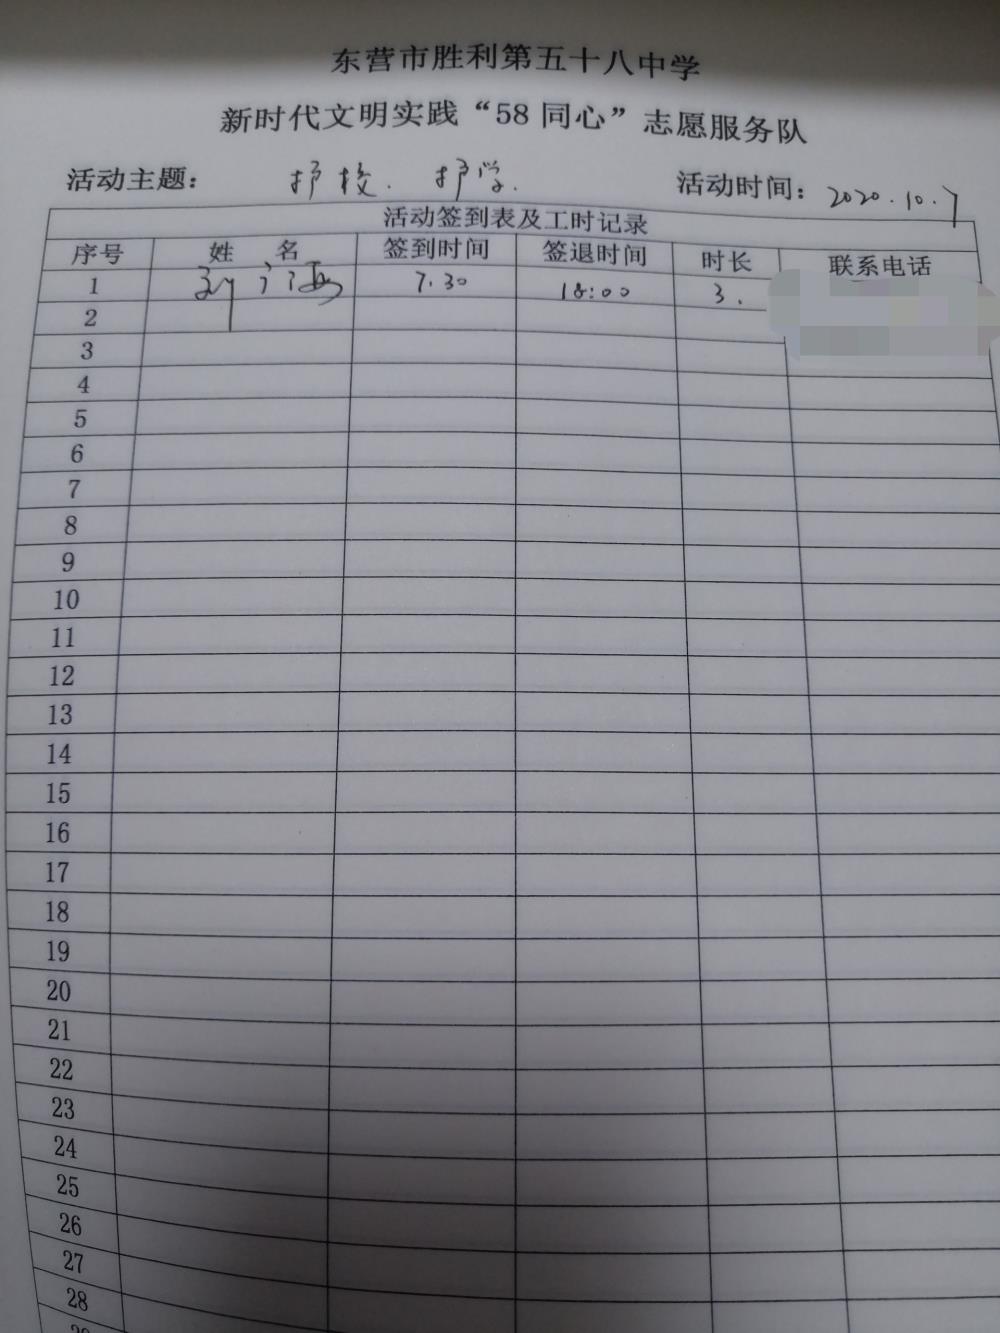 东营市胜利第五十八中学
新时代文明实践“58同心”志愿服务队
活动主题： 护校. 护学. 活动时间： 2020.10.7
活动签到表及工时记录
序号 姓 名 签到时间 签退时间 时长 联系电话
1 7.30 18:00 3.
2
3
4
5
6
7
8
9
10
11
12
13
14
15
16
17
18
19
20
21
22
23
24
25
26
27
28